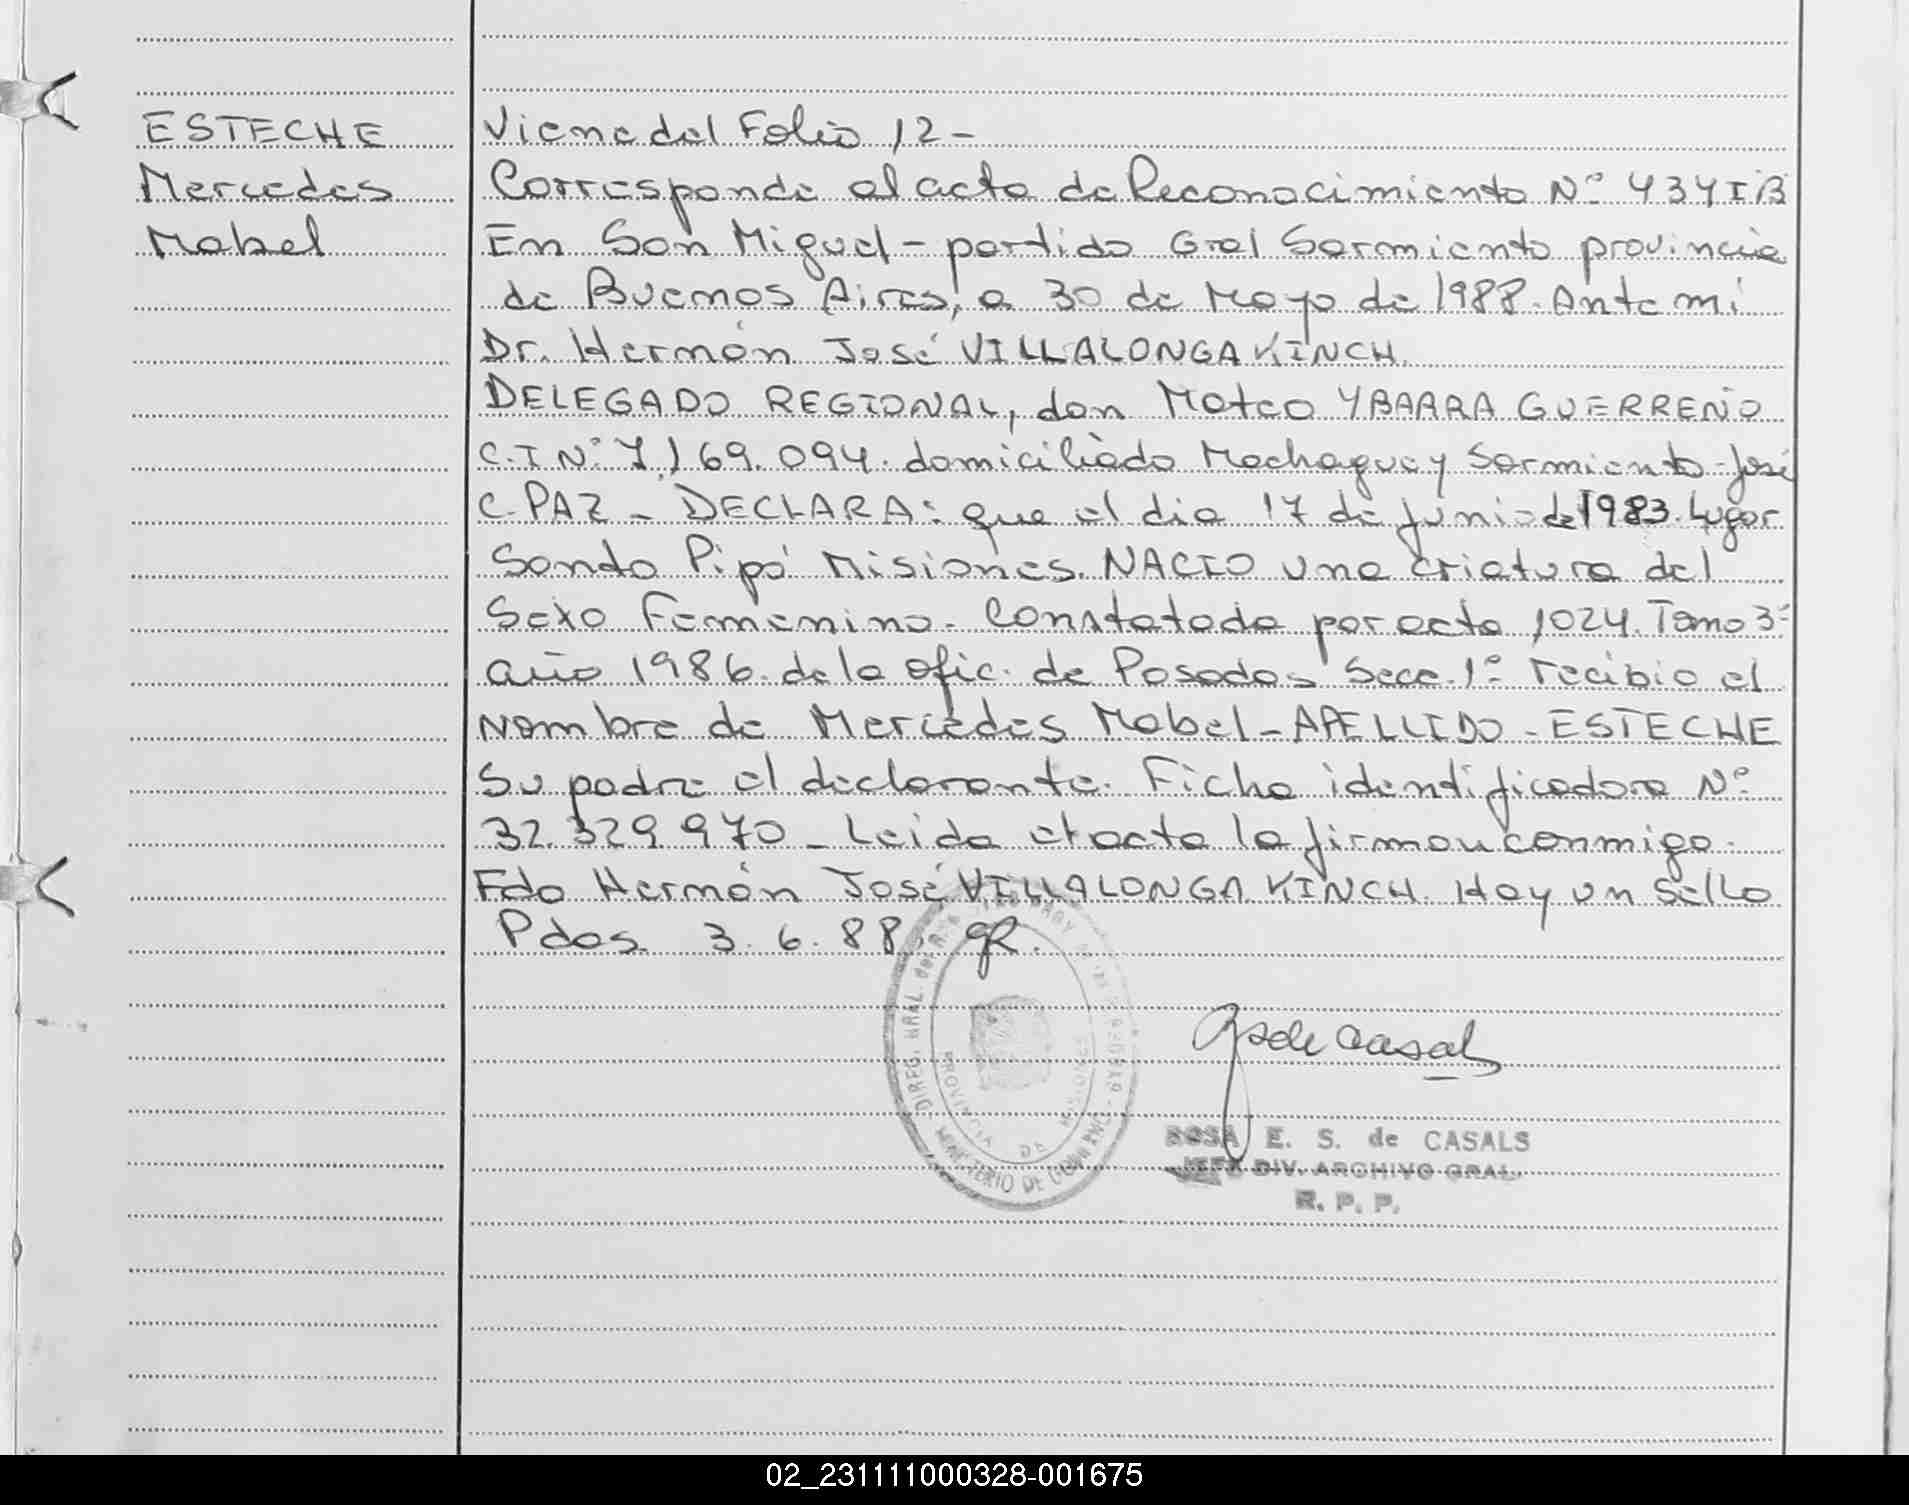 ESTECHE
Mercedes
Mabel
Viene del Folio 12-
Corresponde al acta de Reconocimiento Nº 434IB
En San Miguel - partido Gral Sarmiento provincia
de Buenos Aires, a 30 de Mayo de 1988. Ante mi
Dr. Hernón José VILLALONGA KINCH.
DELEGADO REGIONAL, don Mateo YBARRA GUERREÑO
C.I Nº 7.169.094. domiciliado Machague y Sarmiento - José
C. PAZ - DECLARA: que el dia 17 de junio de 1983. Lugar
Santo Pipó Misiones. NACIO una criatura del
Sexo Femenino. Constatada por acta 1024. Tomo 3º
año 1986. de la ofic. de Posadas Secc. 1º recibio el
Nombre de Mercedes Mabel - APELLIDO - ESTECHE
Su padre el declarante. Ficha identificadora Nº
32.329.970 - Leida el acta la firman conmigo.
Fdo Hernán José VILLALONGA KINCH. Hay un Sello
Pdas. 3. 6. 88. gR.
PROVINCIA DE MISIONES
MINISTERIO DE GOBIERNO
ROSA E. S. de CASALS
JEFE DIV. ARCHIVO GRAL.
R. P. P.
02_231111000328-001675